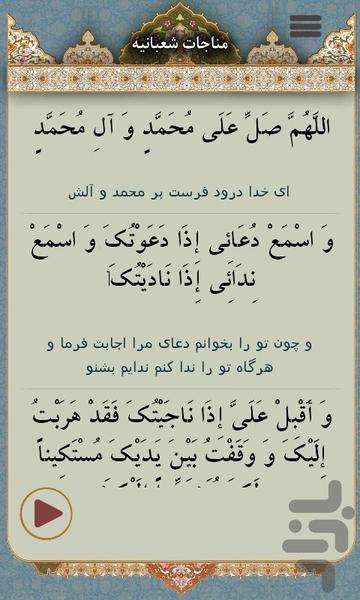 مناجات شعبانیه
اللَّهُمَّ صَلِّ عَلَى مُحَمَّدٍ وَ آلِ مُحَمَّدٍ
ای خدا درود فرست بر محمد و آلش
وَ اسْمَعْ دُعَائِی إِذَا دَعَوْتُکَ وَ اسْمَعْ
نِدَائِی إِذَا نَادَیْتُکَ
و چون تو را بخوانم دعای مرا اجابت فرما و
هرگاه تو را ندا کنم ندایم بشنو
وَ أَقْبِلْ عَلَیَّ إِذَا نَاجَیْتُکَ فَقَدْ هَرَبْتُ
إِلَیْکَ وَ وَقَفْتُ بَیْنَ یَدَیْکَ مُسْتَکِیناً
بازار